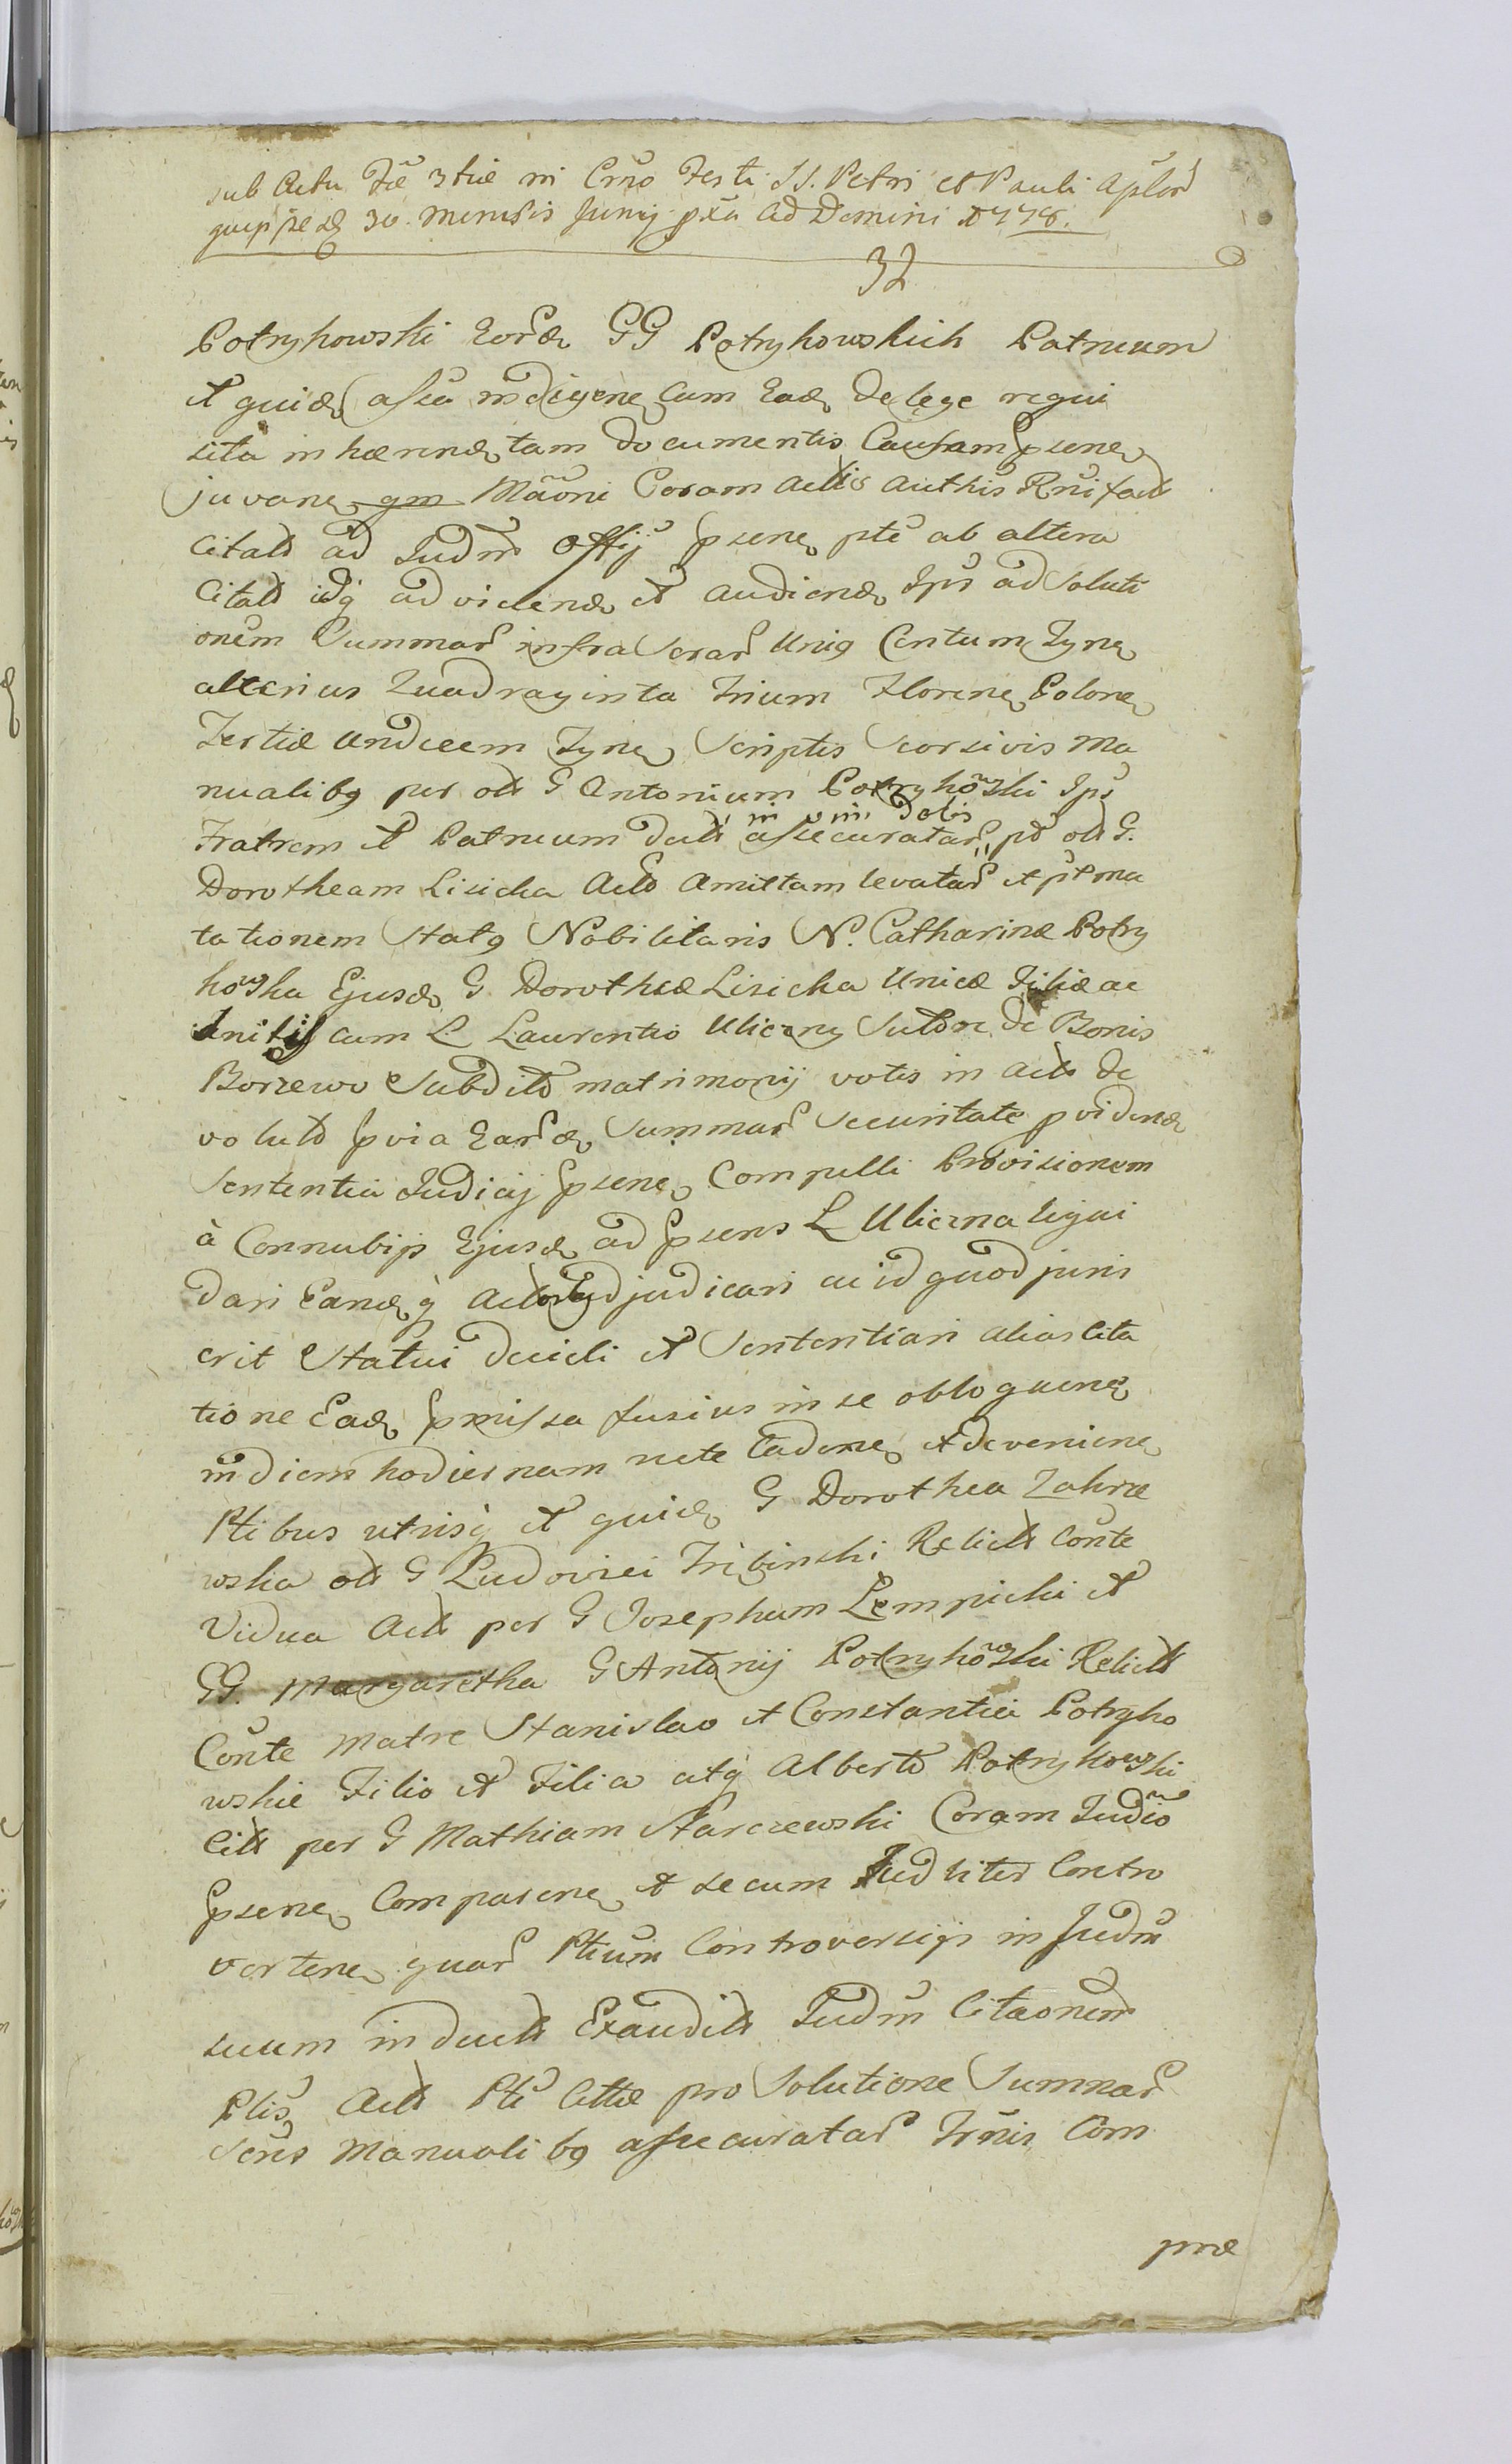 sub Actu Fae 3tiae in Crno Festi SS. Petri et Pauli Aplor
quippe d 30. Mensis Junij pxa Ad Domini 1778.
32
Potryhowski Eord GG Potryhowskich Patruum
et quid assa indigene Cum Ead de lege requi
sita in haerend tam documentis Causam psene
juvane Maoni Coram Actis Authis Rni fact
Citats ad Judm Offij psene pte ab altera
Citats idq ad vidend et audiend Ips ad Soluti
onem Summar infra Scrar Unig Centum Tyne
alterius Quadraginta Trium Florene Polone
Tertiae Undecem Tyne Scriptis Scorsivis Ma
nualibg per ots G Antonium Potryhowski Ips
in vim dotis
Fratrem et Patruum dats assecuratar, pd ots G.
Dorotheam Lisicka Acts Amittam levatar et
tationem Statg Nobilitaris N. Catharinae Potry
howska Ejusd G Dorotheae Lisicka Unicae Filiae ac
initis cum L Laurentio Uliczny Sutore de Bonis
Borzewo Subdito matrimonij votis in Acts de
voluts pvia Eard Summar Securitate pvidend
Sententia Judicij psene Compelli Provisionem
à Connubijs Ejusd ad psens L Uliczna liqui
dari Eandq Adjudicari ac id quod juris
erit Statui decidi et Sententiari alias Cita
tione Ead pmissa fusius in se obloquene
in diem hodiernam recte Cadene et devenine
Ptibus utrisq et quid G Dorothea Zakrze
wska ots G Ludovici Trzbinski Relicts Conte
Vidua Acts per G Josephum Lempicki et
GG. Margaretha G Antonij Potryhowski Relicts
Conte Matre Stanislao et Constantia Potryho
wskie Filio et Filia atq Alberto Potryhowski
Cits per G Mathiam Narczewski Coram Judio
psene Comparene et secum Judliter Contro
vertene quar Ptium Controversijs in Judm
suum inducts Exaudits Judm Citaonem
Ptis Acts Pti Cittae pro Solutione Summar
Scris Manualibg assecuratar Trnis Com
prae